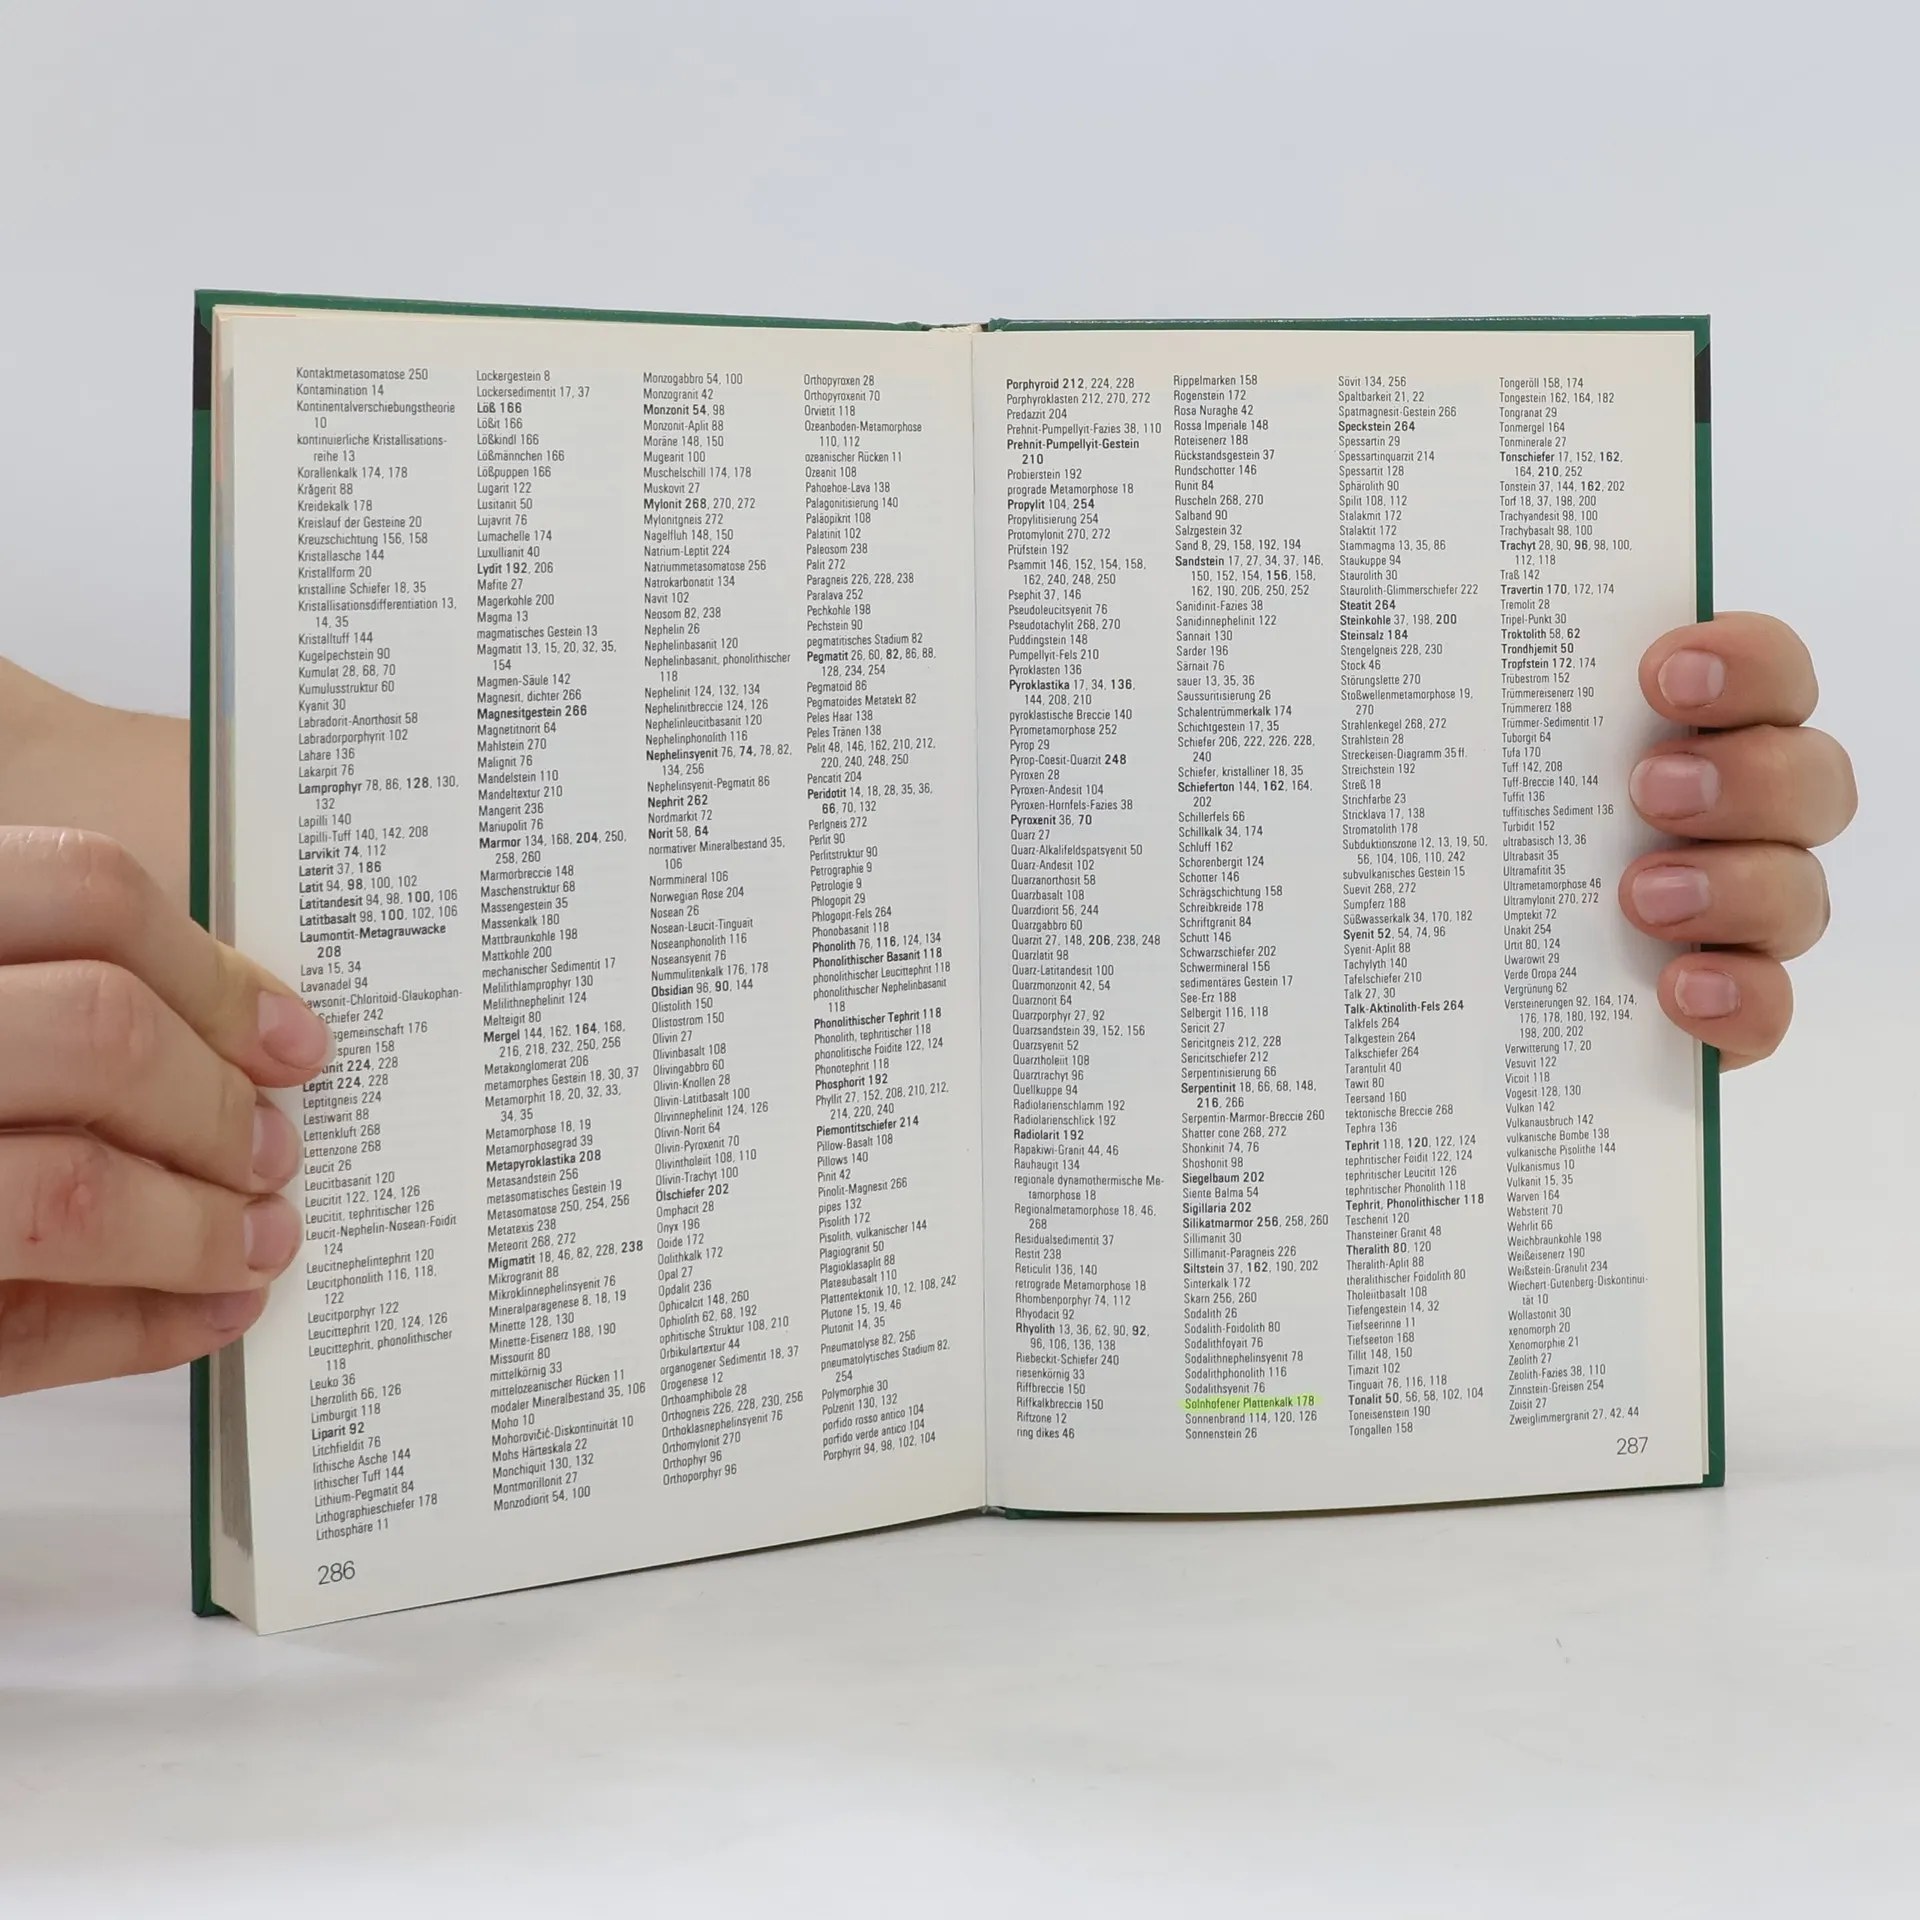 Kontaktmetasomatose 250
Kontamination 14
Kontinentalverschiebungstheorie
10
kontinuierliche Kristallisations-
reihe 13
Korallenkalk 174, 178
Krågerit 88
Kreidekalk 178
Kreislauf der Gesteine 20
Kreuzschichtung 156, 158
Kristallasche 144
Kristallform 20
kristalline Schiefer 18, 35
Kristallisationsdifferentiation 13,
14, 35
Kristalltuff 144
Kugelpechstein 90
Kumulat 28, 68, 70
Kumulusstruktur 60
Kyanit 30
Labradorit-Anorthosit 58
Labradorporphyrit 102
Lahare 136
Lakarpit 76
Lamprophyr 78, 86, 128, 130,
132
Lapilli 140
Lapilli-Tuff 140, 142, 208
Larvikit 74, 112
Laterit 37, 186
Latit 94, 98, 100, 102
Latitandesit 94, 98, 100, 106
Latitbasalt 98, 100, 102, 106
Laumontit-Metagrauwacke
208
Lava 15, 34
Lavanadel 94
awsonit-Chloritoid-Glaukophan-
Schiefer 242
sgemeinschaft 176
spuren 158
nit 224, 228
Leptit 224, 228
Leptitgneis 224
Lestiwarit 88
Lettenkluft 268
Lettenzone 268
Leucit 26
Leucitbasanit 120
Leucitit 122, 124, 126
Leucitit, tephritischer 126
Leucit-Nephelin-Nosean-Foidit
124
Leucitnephelintephrit 120
Leucitphonolith 116, 118,
122
Leucitporphyr 122
Leucittephrit 120, 124, 126
Leucittephrit, phonolithischer
118
Leuko 36
Lherzolith 66, 126
Limburgit 118
Liparit 92
Litchfieldit 76
lithische Asche 144
lithischer Tuff 144
Lithium-Pegmatit 84
Lithographieschiefer 178
Lithosphäre 11
Lockergestein 8
Lockersedimentit 17, 37
Löß 166
Lößit 166
Lößkindl 166
Lößmännchen 166
Lößpuppen 166
Lugarit 122
Lusitanit 50
Lujavrit 76
Lumachelle 174
Luxullianit 40
Lydit 192, 206
Mafite 27
Magerkohle 200
Magma 13
magmatisches Gestein 13
Magmatit 13, 15, 20, 32, 35,
154
Magmen-Säule 142
Magnesit, dichter 266
Magnesitgestein 266
Magnetitnorit 64
Mahlstein 270
Malignit 76
Mandelstein 110
Mandeltextur 210
Mangerit 236
Mariupolit 76
Marmor 134, 168, 204, 250,
258, 260
Marmorbreccie 148
Maschenstruktur 68
Massengestein 35
Massenkalk 180
Mattbraunkohle 198
Mattkohle 200
mechanischer Sedimentit 17
Melilithlamprophyr 130
Melilithnephelinit 124
Melteigit 80
Mergel 144, 162, 164, 168,
216, 218, 232, 250, 256
Metakonglomerat 206
metamorphes Gestein 18, 30, 37
Metamorphit 18, 20, 32, 33,
34, 35
Metamorphose 18, 19
Metamorphosegrad 39
Metapyroklastika 208
Metasandstein 256
metasomatisches Gestein 19
Metasomatose 250, 254, 256
Metatexis 238
Meteorit 268, 272
Migmatit 18, 46, 82, 228, 238
Mikrogranit 88
Mikroklinnephelinsyenit 76
Mineralparagenese 8, 18, 19
Minette 128, 130
Minette-Eisenerz 188, 190
Missourit 80
mittelkörnig 33
mittelozeanischer Rücken 11
modaler Mineralbestand 35, 106
Moho 10
Mohorovičić-Diskontinuität 10
Mohs Härteskala 22
Monchiquit 130, 132
Montmorillonit 27
Monzodiorit 54, 100
Monzogabbro 54, 100
Monzogranit 42
Monzonit 54, 98
Monzonit-Aplit 88
Moräne 148, 150
Mugearit 100
Muschelschill 174, 178
Muskovit 27
Mylonit 268, 270, 272
Mylonitgneis 272
Nagelfluh 148, 150
Natrium-Leptit 224
Natriummetasomatose 256
Natrokarbonatit 134
Navit 102
Neosom 82, 238
Nephelin 26
Nephelinbasanit 120
Nephelinbasanit, phonolithischer
118
Nephelinit 124, 132, 134
Nephelinitbreccie 124, 126
Nephelinleucitbasanit 120
Nephelinphonolith 116
Nephelinsyenit 76, 74, 78, 82,
134, 256
Nephelinsyenit-Pegmatit 86
Nephrit 262
Nordmarkit 72
Norit 58, 64
normativer Mineralbestand 35,
106
Normmineral 106
Norwegian Rose 204
Nosean 26
Nosean-Leucit-Tinguait
Noseanphonolith 116
Noseansyenit 76
Nummulitenkalk 176, 178
Obsidian 96, 90, 144
Olistolith 150
Olistostrom 150
Olivin 27
Olivinbasalt 108
Olivingabbro 60
Olivin-Knollen 28
Olivin-Latitbasalt 100
Olivinnephelinit 124, 126
Olivin-Norit 64
Olivin-Pyroxenit 70
Olivintholeiit 108, 110
Olivin-Trachyt 100
Ölschiefer 202
Omphacit 28
Onyx 196
Ooide 172
Oolithkalk 172
Opal 27
Opdalit 236
Ophicalcit 148, 260
Ophiolith 62, 68, 192
ophitische Struktur 108, 210
Orbikulartextur 44
organogener Sedimentit 18, 37
Orogenese 12
Orthoamphibole 28
Orthogneis 226, 228, 230, 256
Orthoklasnephelinsyenit 76
Orthomylonit 270
Orthophyr 96
Orthoporphyr 96
Orthopyroxen 28
Orthopyroxenit 70
Orvietit 118
Ozeanboden-Metamorphose
110, 112
ozeanischer Rücken 11
Ozeanit 108
Pahoehoe-Lava 138
Palagonitisierung 140
Paläopikrit 108
Palatinit 102
Paleosom 238
Palit 272
Paragneis 226, 228, 238
Paralava 252
Pechkohle 198
Pechstein 90
pegmatitisches Stadium 82
Pegmatit 26, 60, 82, 86, 88,
128, 234, 254
Pegmatoid 86
Pegmatoides Metatekt 82
Peles Haar 138
Peles Tränen 138
Pelit 48, 146, 162, 210, 212,
220, 240, 248, 250
Pencatit 204
Peridotit 14, 18, 28, 35, 36,
66, 70, 132
Perlgneis 272
Perlit 90
Perlitstruktur 90
Petrographie 9
Petrologie 9
Phlogopit 29
Phlogopit-Fels 264
Phonobasanit 118
Phonolith 76, 116, 124, 134
Phonolithischer Basanit 118
phonolithischer Leucittephrit 118
phonolithischer Nephelinbasanit
118
Phonolithischer Tephrit 118
Phonolith, tephritischer 118
phonolitische Foidite 122, 124
Phonotephrit 118
Phosphorit 192
Phyllit 27, 152, 208, 210, 212,
214, 220, 240
Piemontitschiefer 214
Pillow-Basalt 108
Pillows 140
Pinit 42
Pinolit-Magnesit 266
pipes 132
Pisolith 172
Pisolith, vulkanischer 144
Plagiogranit 50
Plagioklasaplit 88
Plateaubasalt 110
Plattentektonik 10, 12, 108, 242
Plutone 15, 19, 46
Plutonit 14, 35
Pneumatolyse 82, 256
pneumatolytisches Stadium 82,
254
Polymorphie 30
Polzenit 130, 132
porfido rosso antico 104
porfido verde antico 104
Porphyrit 94, 98, 102, 104
286
Porphyroid 212, 224, 228
Porphyroklasten 212, 270, 272
Predazzit 204
Prehnit-Pumpellyit-Fazies 38, 110
Prehnit-Pumpellyit-Gestein
210
Probierstein 192
prograde Metamorphose 18
Propylit 104, 254
Propylitisierung 254
Protomylonit 270, 272
Prüfstein 192
Psammit 146, 152, 154, 158,
162, 240, 248, 250
Psephit 37, 146
Pseudoleucitsyenit 76
Pseudotachylit 268, 270
Puddingstein 148
Pumpellyit-Fels 210
Pyroklasten 136
Pyroklastika 17, 34, 136,
144, 208, 210
pyroklastische Breccie 140
Pyrometamorphose 252
Pyrop 29
Pyrop-Coesit-Quarzit 248
Pyroxen 28
Pyroxen-Andesit 104
Pyroxen-Hornfels-Fazies 38
Pyroxenit 36, 70
Quarz 27
Quarz-Alkalifeldspatsyenit 50
Quarz-Andesit 102
Quarzanorthosit 58
Quarzbasalt 108
Quarzdiorit 56, 244
Quarzgabbro 60
Quarzit 27, 148, 206, 238, 248
Quarzlatit 98
Quarz-Latitandesit 100
Quarzmonzonit 42, 54
Quarznorit 64
Quarzporphyr 27, 92
Quarzsandstein 39, 152, 156
Quarzsyenit 52
Quarztholeiit 108
Quarztrachyt 96
Quellkuppe 94
Radiolarienschlamm 192
Radiolarienschlick 192
Radiolarit 192
Rapakiwi-Granit 44, 46
Rauhaugit 134
regionale dynamothermische Me-
tamorphose 18
Regionalmetamorphose 18, 46,
268
Residualsedimentit 37
Restit 238
Reticulit 136, 140
retrograde Metamorphose 18
Rhombenporphyr 74, 112
Rhyodacit 92
Rhyolith 13, 36, 62, 90, 92,
96, 106, 136, 138
Riebeckit-Schiefer 240
riesenkörnig 33
Riffbreccie 150
Riffkalkbreccie 150
Riftzone 12
ring dikes 46
Rippelmarken 158
Rogenstein 172
Rosa Nuraghe 42
Rossa Imperiale 148
Roteisenerz 188
Rückstandsgestein 37
Rundschotter 146
Runit 84
Ruscheln 268, 270
Salband 90
Salzgestein 32
Sand 8, 29, 158, 192, 194
Sandstein 17, 27, 34, 37, 146,
150, 152, 154, 156, 158,
162, 190, 206, 250, 252
Sanidinit-Fazies 38
Sanidinnephelinit 122
Sannait 130
Sarder 196
Särnait 76
sauer 13, 35, 36
Saussuritisierung 26
Schalentrümmerkalk 174
Schichtgestein 17, 35
Schiefer 206, 222, 226, 228,
240
Schiefer, kristalliner 18, 35
Schieferton 144, 162, 164,
202
Schillerfels 66
Schillkalk 34, 174
Schluff 162
Schorenbergit 124
Schotter 146
Schrägschichtung 158
Schreibkreide 178
Schriftgranit 84
Schutt 146
Schwarzschiefer 202
Schwermineral 156
sedimentäres Gestein 17
See-Erz 188
Selbergit 116, 118
Sericit 27
Sericitgneis 212, 228
Sericitschiefer 212
Serpentinisierung 66
Serpentinit 18, 66, 68, 148,
216, 266
Serpentin-Marmor-Breccie 260
Shatter cone 268, 272
Shonkinit 74, 76
Shoshonit 98
Siegelbaum 202
Siente Balma 54
Sigillaria 202
Silikatmarmor 256, 258, 260
Sillimanit 30
Sillimanit-Paragneis 226
Siltstein 37, 162, 190, 202
Sinterkalk 172
Skarn 256, 260
Sodalith 26
Sodalith-Foidolith 80
Sodalithfoyait 76
Sodalithnephelinsyenit 78
Sodalithphonolith 116
Sodalithsyenit 76
Solnhofener Plattenkalk 178
Sonnenbrand 114, 120, 126
Sonnenstein 26
Sövit 134, 256
Spaltbarkeit 21, 22
Spatmagnesit-Gestein 266
Speckstein 264
Spessartin 29
Spessartinquarzit 214
Spessartit 128
Sphärolith 90
Spilit 108, 112
Stalakmit 172
Stalaktit 172
Stammagma 13, 35, 86
Staukuppe 94
Staurolith 30
Staurolith-Glimmerschiefer 222
Steatit 264
Steinkohle 37, 198, 200
Steinsalz 184
Stengelgneis 228, 230
Stock 46
Störungslette 270
Stoßwellenmetamorphose 19,
270
Strahlenkegel 268, 272
Strahlstein 28
Streckeisen-Diagramm 35 ff.
Streichstein 192
Streß 18
Strichfarbe 23
Stricklava 17, 138
Stromatolith 178
Subduktionszone 12, 13, 19, 50,
56, 104, 106, 110, 242
subvulkanisches Gestein 15
Suevit 268, 272
Sumpferz 188
Süßwasserkalk 34, 170, 182
Syenit 52, 54, 74, 96
Syenit-Aplit 88
Tachylyth 140
Tafelschiefer 210
Talk 27, 30
Talk-Aktinolith-Fels 264
Talkfels 264
Talkgestein 264
Talkschiefer 264
Tarantulit 40
Tawit 80
Teersand 160
tektonische Breccie 268
Tephra 136
Tephrit 118, 120, 122, 124
tephritischer Foidit 122, 124
tephritischer Leucitit 126
tephritischer Phonolith 118
Tephrit, Phonolithischer 118
Teschenit 120
Thansteiner Granit 48
Theralith 80, 120
Theralith-Aplit 88
theralithischer Foidolith 80
Tholeiitbasalt 108
Tiefengestein 14, 32
Tiefseerinne 11
Tiefseeton 168
Tillit 148, 150
Timazit 102
Tinguait 76, 116, 118
Tonalit 50, 56, 58, 102, 104
Toneisenstein 190
Tongallen 158
Tongeröll 158, 174
Tongestein 162, 164, 182
Tongranat 29
Tonmergel 164
Tonminerale 27
Tonschiefer 17, 152, 162,
164, 210, 252
Tonstein 37, 144, 162, 202
Torf 18, 37, 198, 200
Trachyandesit 98, 100
Trachybasalt 98, 100
Trachyt 28, 90, 96, 98, 100,
112, 118
Traß 142
Travertin 170, 172, 174
Tremolit 28
Tripel-Punkt 30
Troktolith 58, 62
Trondhjemit 50
Tropfstein 172, 174
Trübestrom 152
Trümmereisenerz 190
Trümmererz 188
Trümmer-Sedimentit 17
Tuborgit 64
Tufa 170
Tuff 142, 208
Tuff-Breccie 140, 144
Tuffit 136
tuffitisches Sediment 136
Turbidit 152
ultrabasisch 13, 36
Ultrabasit 35
Ultramafitit 35
Ultrametamorphose 46
Ultramylonit 270, 272
Umptekit 72
Unakit 254
Urtit 80, 124
Uwarowit 29
Verde Oropa 244
Vergrünung 62
Versteinerungen 92, 164, 174,
176, 178, 180, 192, 194,
198, 200, 202
Verwitterung 17, 20
Vesuvit 122
Vicoit 118
Vogesit 128, 130
Vulkan 142
Vulkanausbruch 142
vulkanische Bombe 138
vulkanische Pisolithe 144
Vulkanismus 10
Vulkanit 15, 35
Warven 164
Websterit 70
Wehrlit 66
Weichbraunkohle 198
Weißeisenerz 190
Weißstein-Granulit 234
Wiechert-Gutenberg-Diskontinui-
tät 10
Wollastonit 30
xenomorph 20
Xenomorphie 21
Zeolith 27
Zeolith-Fazies 38, 110
Zinnstein-Greisen 254
Zoisit 27
Zweiglimmergranit 27, 42, 44
287